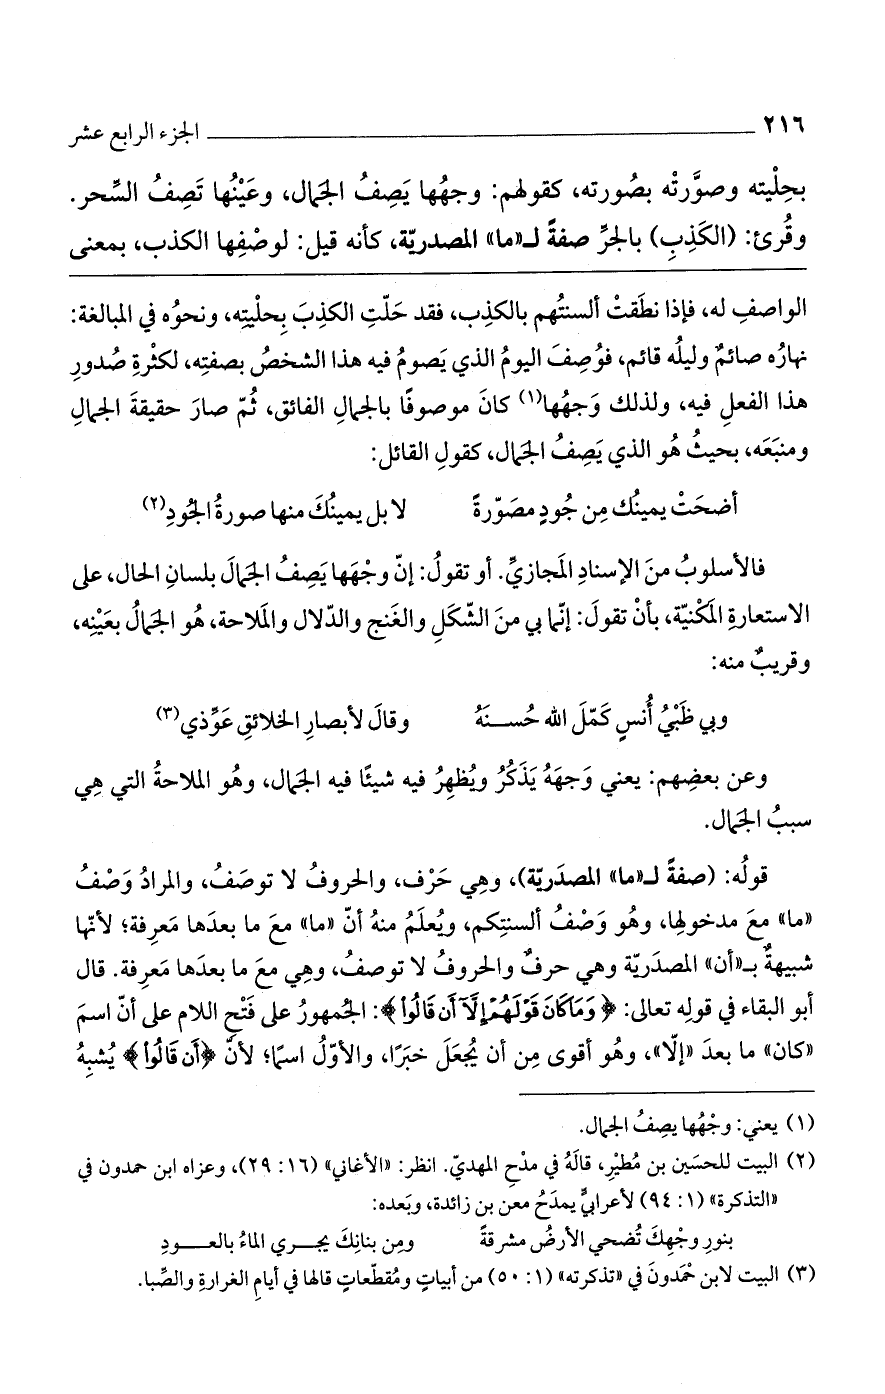 ٢١٦ ــــــ الجزء الرابع عشر
بحِلْيته وصوَّرتْه بصُورته، كقولهم: وجهُها يَصِفُ الجَمال، وعَيْنُها تَصِفُ السِّحر.
وقُرئ: (الكَذِبِ) بالجرِّ صفةً لـ«ما» المصدريّة، كأنه قيل: لوصْفِها الكذب، بمعنى
الواصفِ له، فإذا نطَقتْ ألسنتُهم بالكذِب، فقد حَلّتِ الكذِبَ بِحلْيتِه، ونحوُه في المبالغة:
نهارُه صائمٌ وليلُه قائم، فوُصِفَ اليومُ الذي يَصومُ فيه هذا الشخصُ بصفتِه، لكثْرةِ صُدورِ
هذا الفعلِ فيه، ولذلك وَجهُها(١) كانَ موصوفًا بالجمالِ الفائق، ثُمّ صارَ حقيقةَ الجمالِ
ومنبَعَه، بحيثُ هُو الذي يَصِفُ الجَمال، كقولِ القائل:
أضحَتْ يمينُك مِن جُودٍ مصَوّرةً لا بل يمينُكَ منها صورةُ الجُودِ(٢)
فالأسلوبُ منَ الإسنادِ المَجازيِّ. أو تقولُ: إنّ وجْهَها يَصِفُ الجمالَ بلسانِ الحال، على
الاستعارةِ المَكْنيّة، بأنْ تقولَ: إنّما بي منَ الشّكَلِ والغَنج والدّلال والمَلاحة، هُو الجمالُ بعَيْنِه،
وقريبٌ منه:
وبي ظَبْيُ أُنسٍ كَمّلَ الله حُسـنَهُ وقالَ لأبصارِ الخلائقِ عَوِّذي(٣)
وعن بعضِهم: يعني وَجهَهُ يَذكُرُ ويُظهِرُ فيه شيئًا فيه الجمال، وهُو الملاحةُ التي هِي
سببُ الجَمال.
قولُه: (صفةً لـ«ما» المصدَرية)، وهِي حَرْف، والحروفُ لا توصَفُ، والمرادُ وَصْفُ
«ما» معَ مدخولِها، وهُو وَصْفُ ألسنتِكم، ويُعلَمُ منهُ أنّ «ما» معَ ما بعدَها مَعرِفة؛ لأنّها
شبيهةٌ بـ«أن» المصدَريّة وهي حرفٌ والحروفُ لا توصفُ، وهِي معَ ما بعدَها مَعرِفة. قال
أبو البقاء في قولِه تعالى: ﴿وَمَا كَانَ قَوْلَهُمْ إِلَّا أَن قَالُوا﴾: الجُمهورُ على فَتْح اللام على أنّ اسمَ
«كان» ما بعدَ «إلّا»، وهُو أقوى مِن أن يُجعَلَ خبَرًا، والأوّلُ اسمًا؛ لأنّ ﴿أَن قَالُوا﴾ يُشبِهُ
(١) يعني: وجْهُها يصِفُ الجمال.
(٢) البيت للحسَين بن مُطيْر، قالَهُ في مدْح المهديّ. انظر: «الأغاني» (١٦: ٢٩)، وعزاه ابن حمدون في
«التذكرة» (١: ٩٤) لأعرابيٍّ يمدَحُ معن بن زائدة، وبَعده:
بنورِ وجْهِكَ تُضحي الأرضُ مشرقةً ومِن بنانِكَ يجـري الماءُ بالعـودِ
(٣) البيت لابن حَمْدونَ في «تذكرته» (١: ٥٠) من أبياتٍ ومُقطّعاتٍ قالها في أيامِ الغرارةِ والصِّبا.